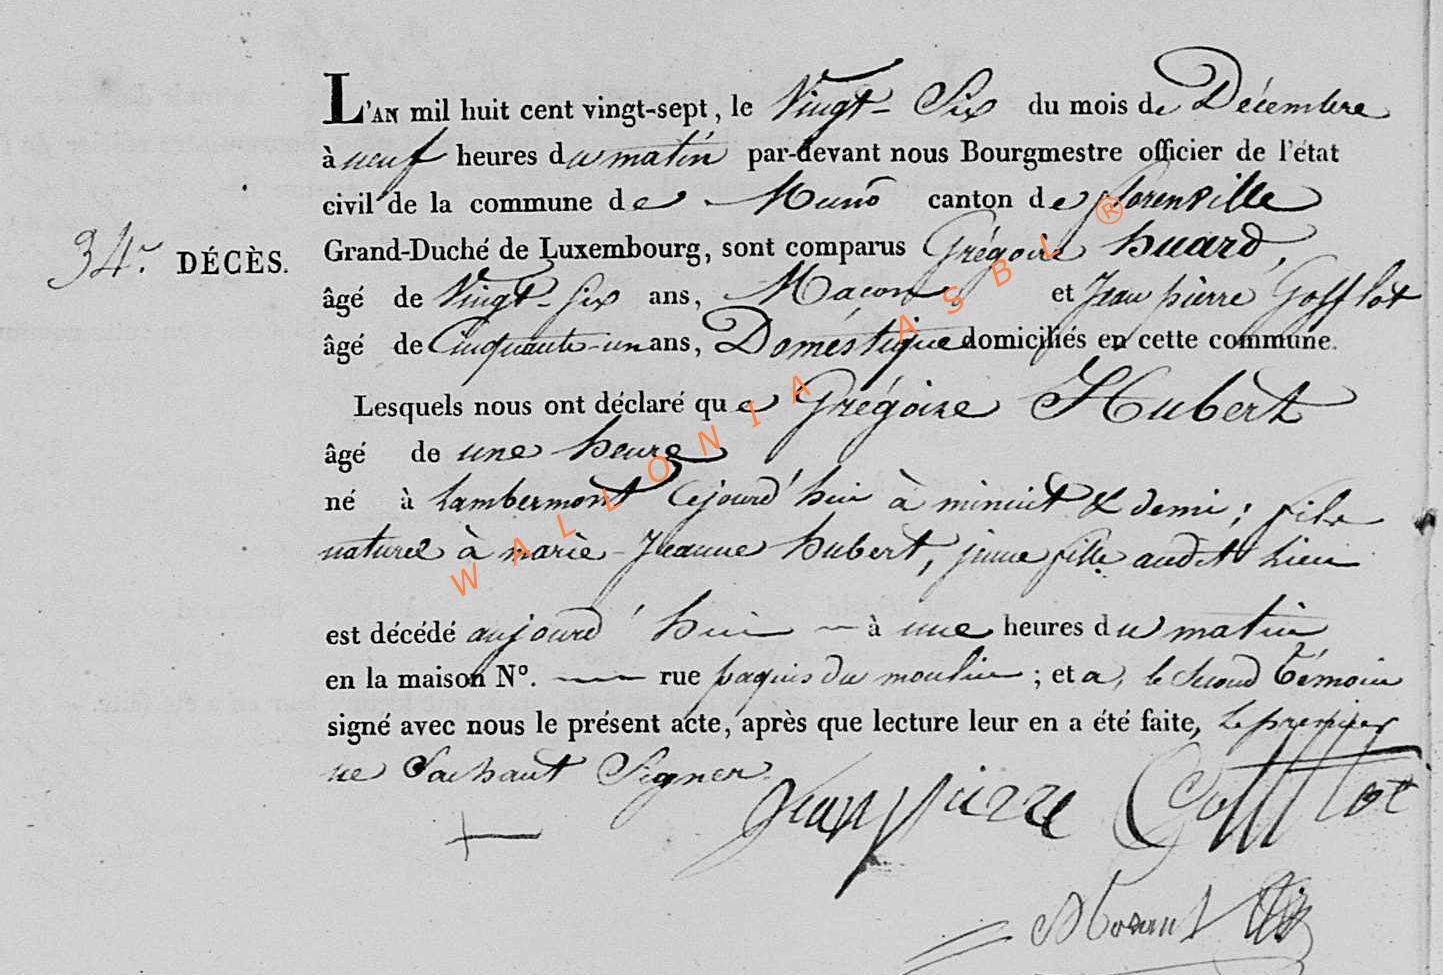 L'AN mil huit cent vingt-sept, le Vingt-Six du mois de Décembre
à neuf heures du matin par-devant nous Bourgmestre officier de l'état
civil de la commune de Muno canton de florenville
34e DÉCÈS. Grand-Duché de Luxembourg, sont comparus Grégoire huard,
âgé de Vingt-Six ans, Macon, et Jean pierre Gofflot
âgé de Cinquante-un ans, Doméstique domiciliés en cette commune.
Lesquels nous ont déclaré que Grégoire Hubert
âgé de une heure
né à Lambermont Cejourd'hui à minuit & demi ; fils
naturel à marie-Jeanne hubert, jeune fille audit lieu
est décédé aujourd'hui — à une heures du matin
en la maison N°. —— rue paquis du moulin ; et a, le Second témoin
signé avec nous le présent acte, après que lecture leur en a été faite, Le premier
ne Sachant Signer.
Jean pierre Gofflot
WALLONIA ASBL ®